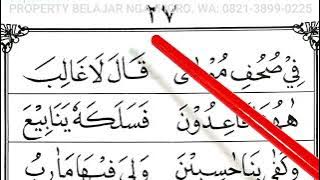 PROPERTY BELAJAR WA: 0821-3899-0225
٢٧
فِيْ صُحُفِ مُوْسٰى قَالَ لَاغَالِبَ
هٰهُنَا قَاعِدُوْنَ فَسَلَكَهٗ يَنَابِيْعَ
وَكَفٰى بِنَا حٰسِبِيْنَ وَلِيَ فِيْهَا مَاٰرِبُ